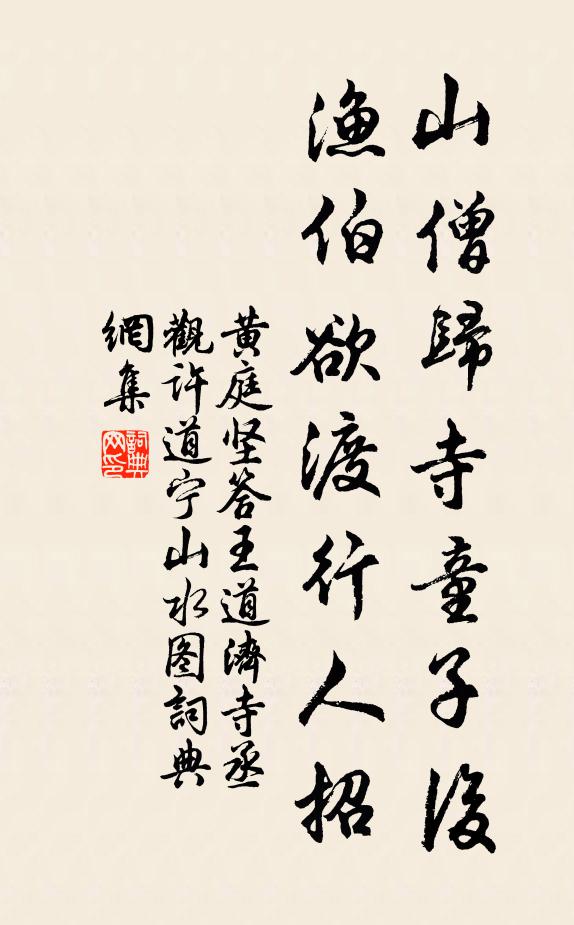 山僧歸寺童子後
漁伯欲渡行人招
黄庭坚答王道濟寺丞
觀许道宁山水图詞典
網集
詞典
网印